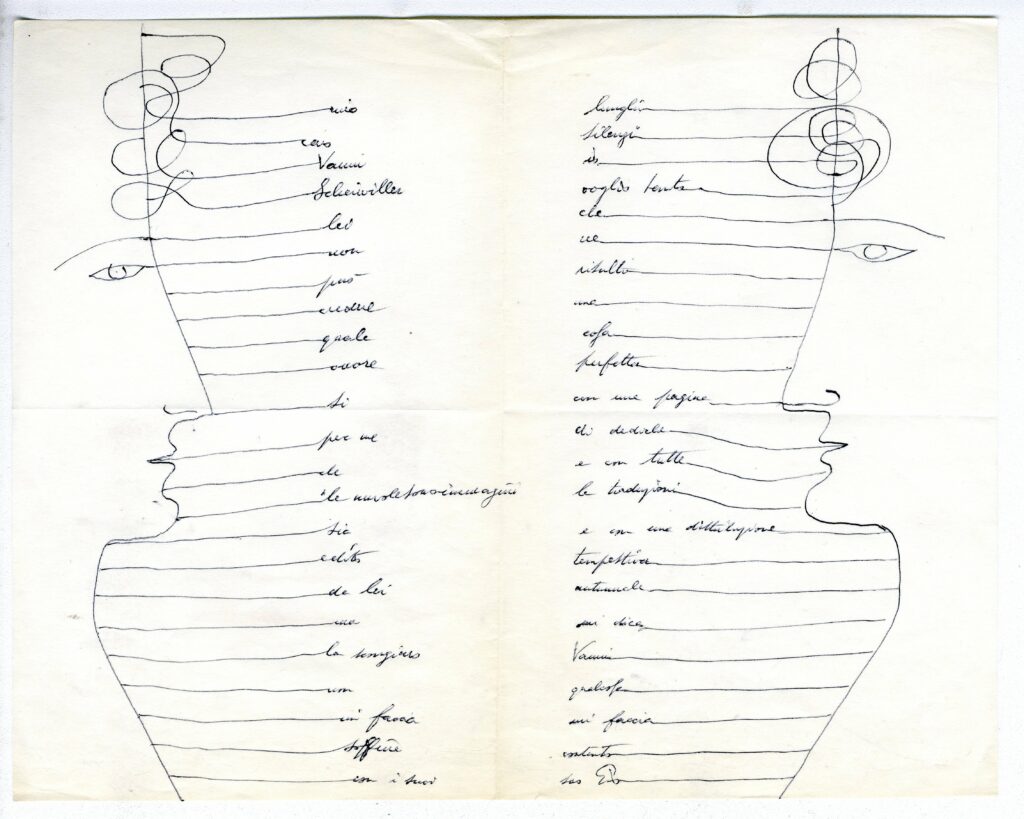 mio
caro
Vanni
Scheiwiller
lei
non
può
credere
quale
onore
per me
che
sia
edito
da lei
ma
la scongiuro
non
mi faccia
soffrire
con i suoi
lunghi
silenzi
io
voglio tanto
che
ne
risulti
una
cosa
perfetta
con una pagina
di dediche
e con tutte
le traduzioni
e con una distribuzione
tempestiva
autunnale
mi dica
Vanni
qualcosa
mi faccia
contento
suo